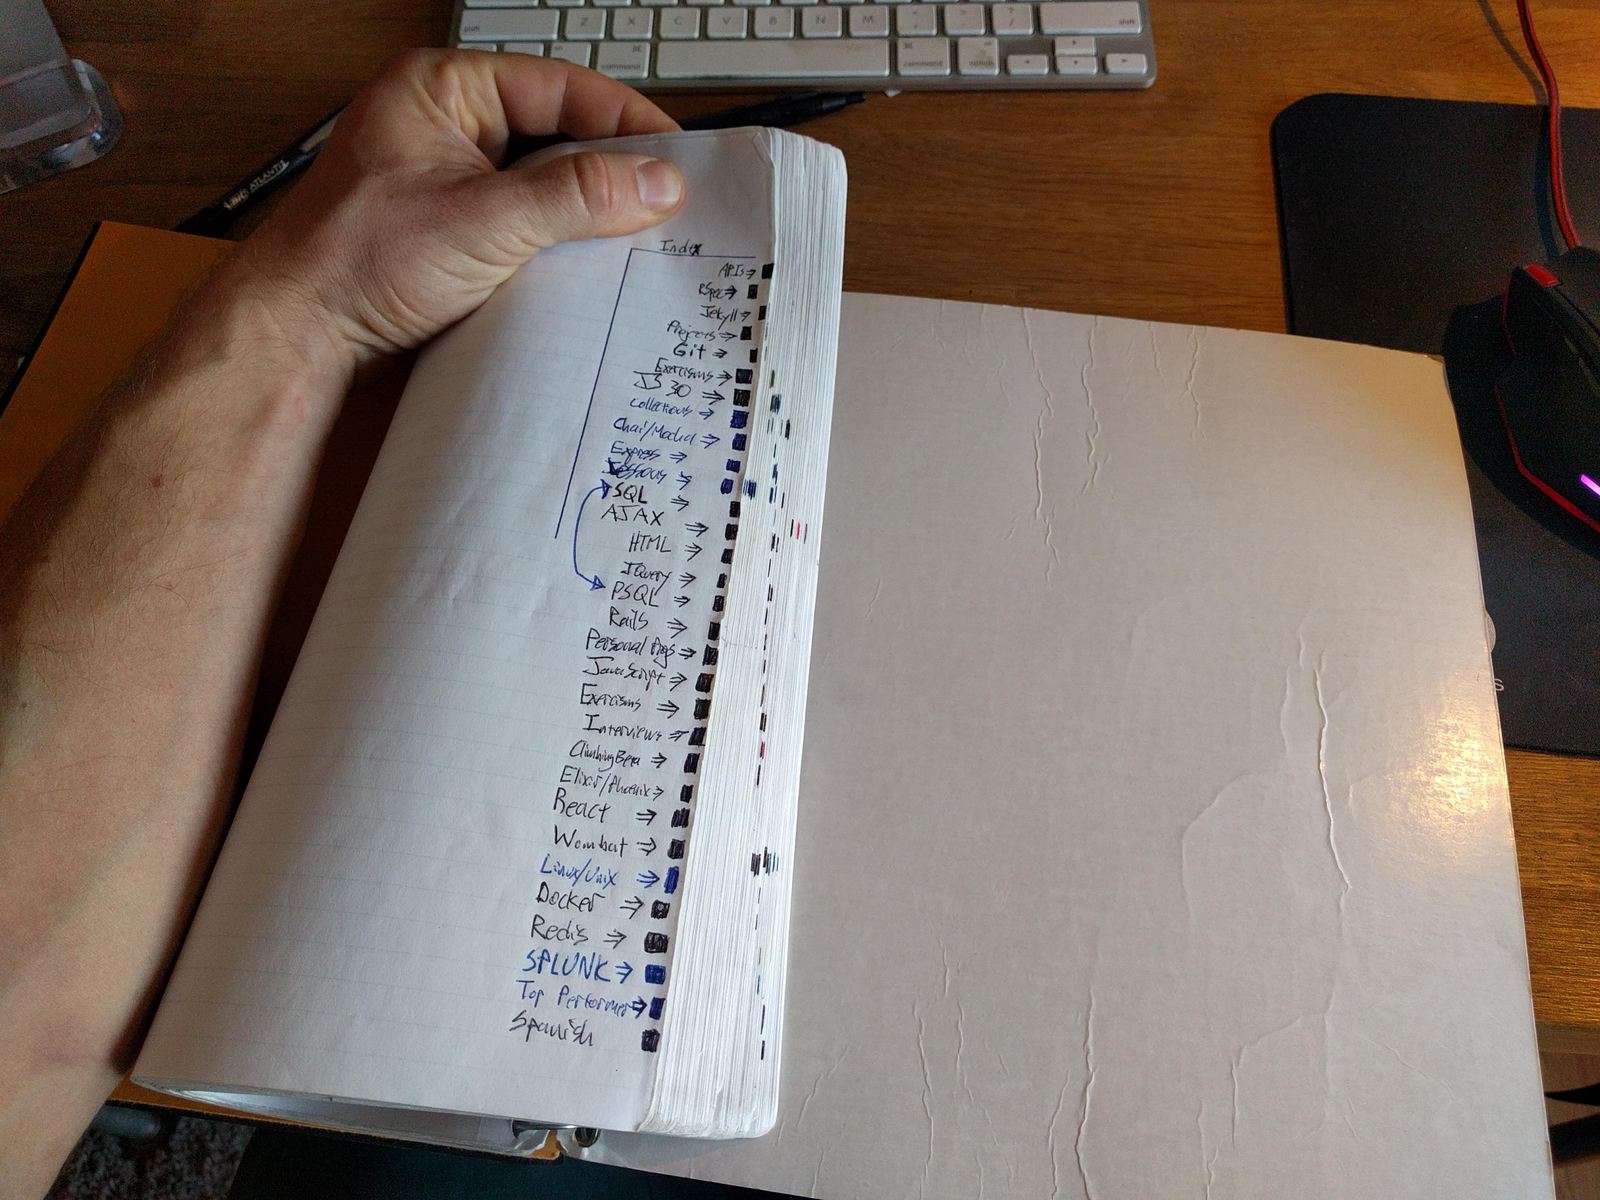 shift
Z X C V B N M < , > . ? / shift
⌘ command ⌘ command option
ATLANTIS
Index
APIs ⇒
RSpec ⇒
Jekyll ⇒
Projects ⇒
Git ⇒
Exercisms ⇒
JS 30 ⇒
Collections ⇒
Chai/Mocha ⇒
Express ⇒
Sessions ⇒
SQL ⇒
AJAX ⇒
HTML ⇒
JQuery ⇒
PSQL ⇒
Rails ⇒
Personal ⇒
JavaScript ⇒
Exercisms ⇒
Interviews ⇒
Climbing Beta ⇒
Elixir/Phoenix ⇒
React ⇒
Wombat ⇒
Linux/Unix ⇒
Docker ⇒
Redis ⇒
SPLUNK ⇒
Top Performer ⇒
Spanish